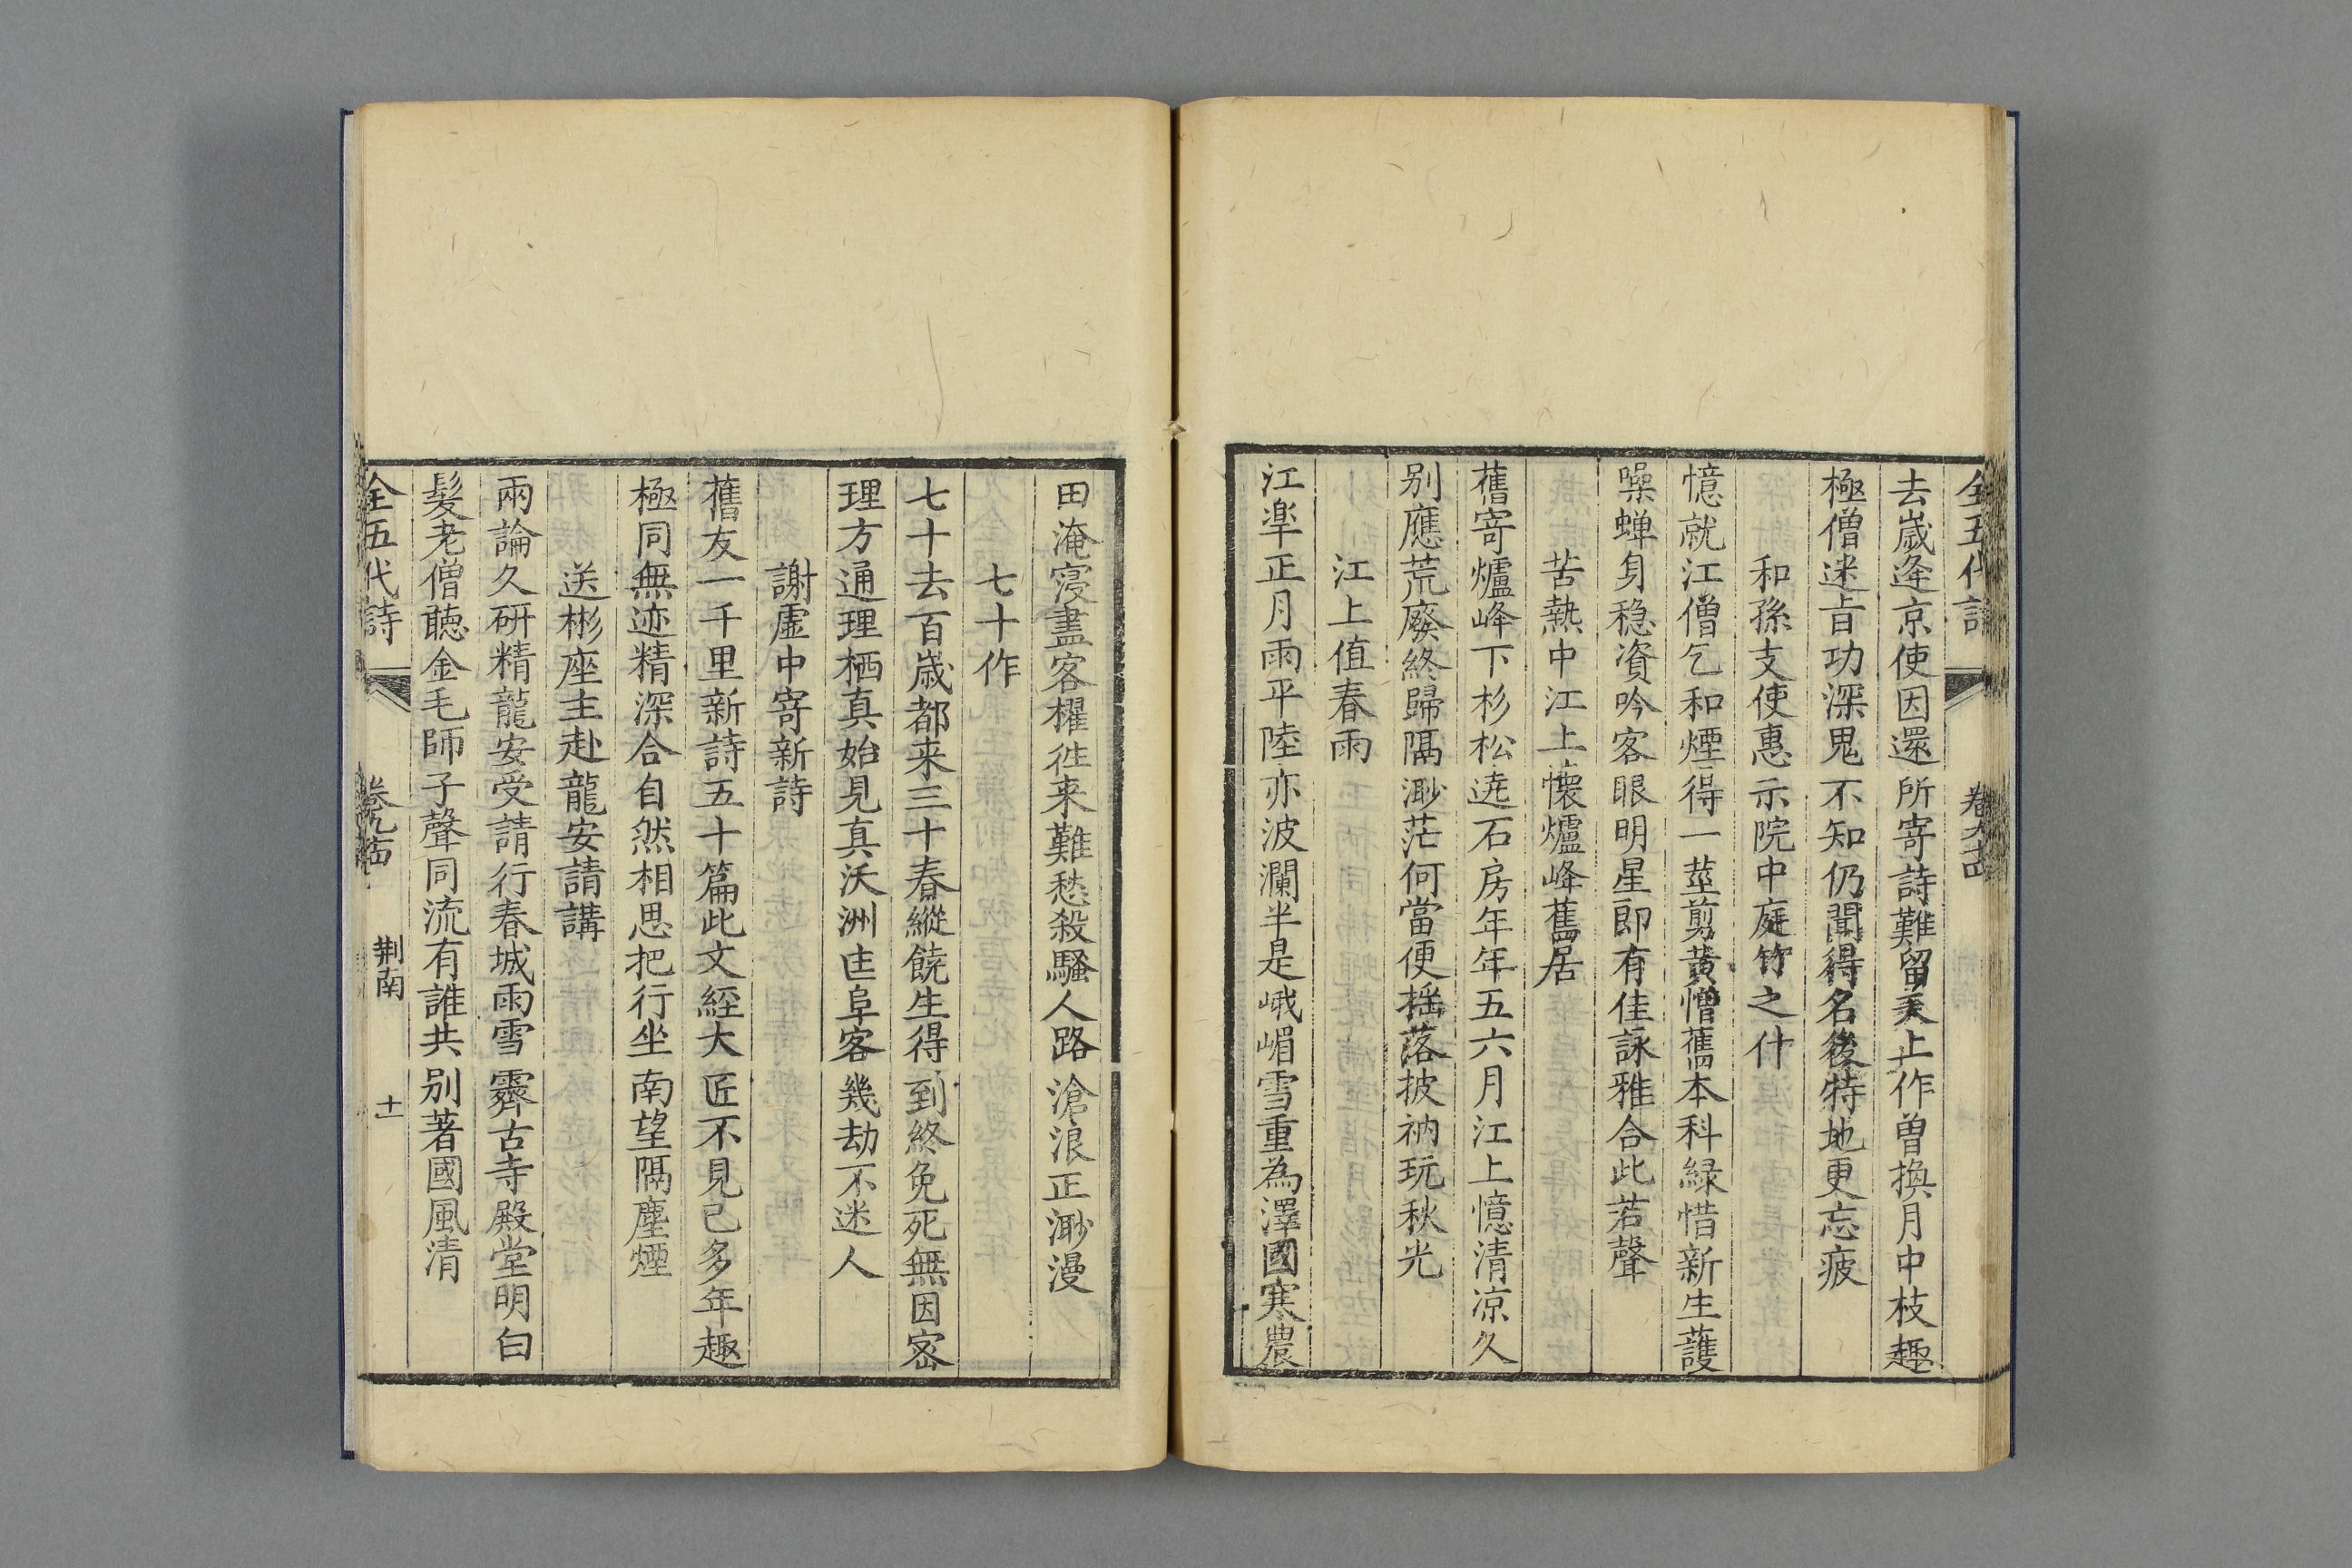 全五代詩 卷六十四
去歲逢京使因還所寄詩難留羑上作曽換月中枝趣
極僧迷旨功深鬼不知仍聞得名後特地更忘疲
和孫支使惠示院中庭竹之什
憶就江僧乞和煙得一莖剪黄憎舊本科緑惜新生護
噪蝉身穏資吟客眼明星即有佳詠雅合此若聲
苦熱中江上懷爐峰舊居
舊寄爐峰下杉松遶石房年年五六月江上憶清凉久
别應荒廢終歸隔渺茫何當便揺落披衲玩秋光
江上值春雨
江皐正月雨平陸亦波瀾半是峨嵋雪重為澤國寒農
田淹寖盡客櫂徃来難愁殺騷人路滄浪正渺漫
七十作
七十去百歲都来三十春縱饒生得到終免死無因密
理方通理栖真始見真沃洲匡阜客幾劫不迷人
謝虛中寄新詩
舊友一千里新詩五十篇此文經大匠不見己多年趣
極同無迹精深合自然相思把行坐南望隔塵煙
送彬座主赴龍安請講
兩論久研精龍安受請行春城雨雪霽古寺殿堂明白
髪老僧聽金毛師子聲同流有誰共别著國風清
全五代詩 荆南 十一